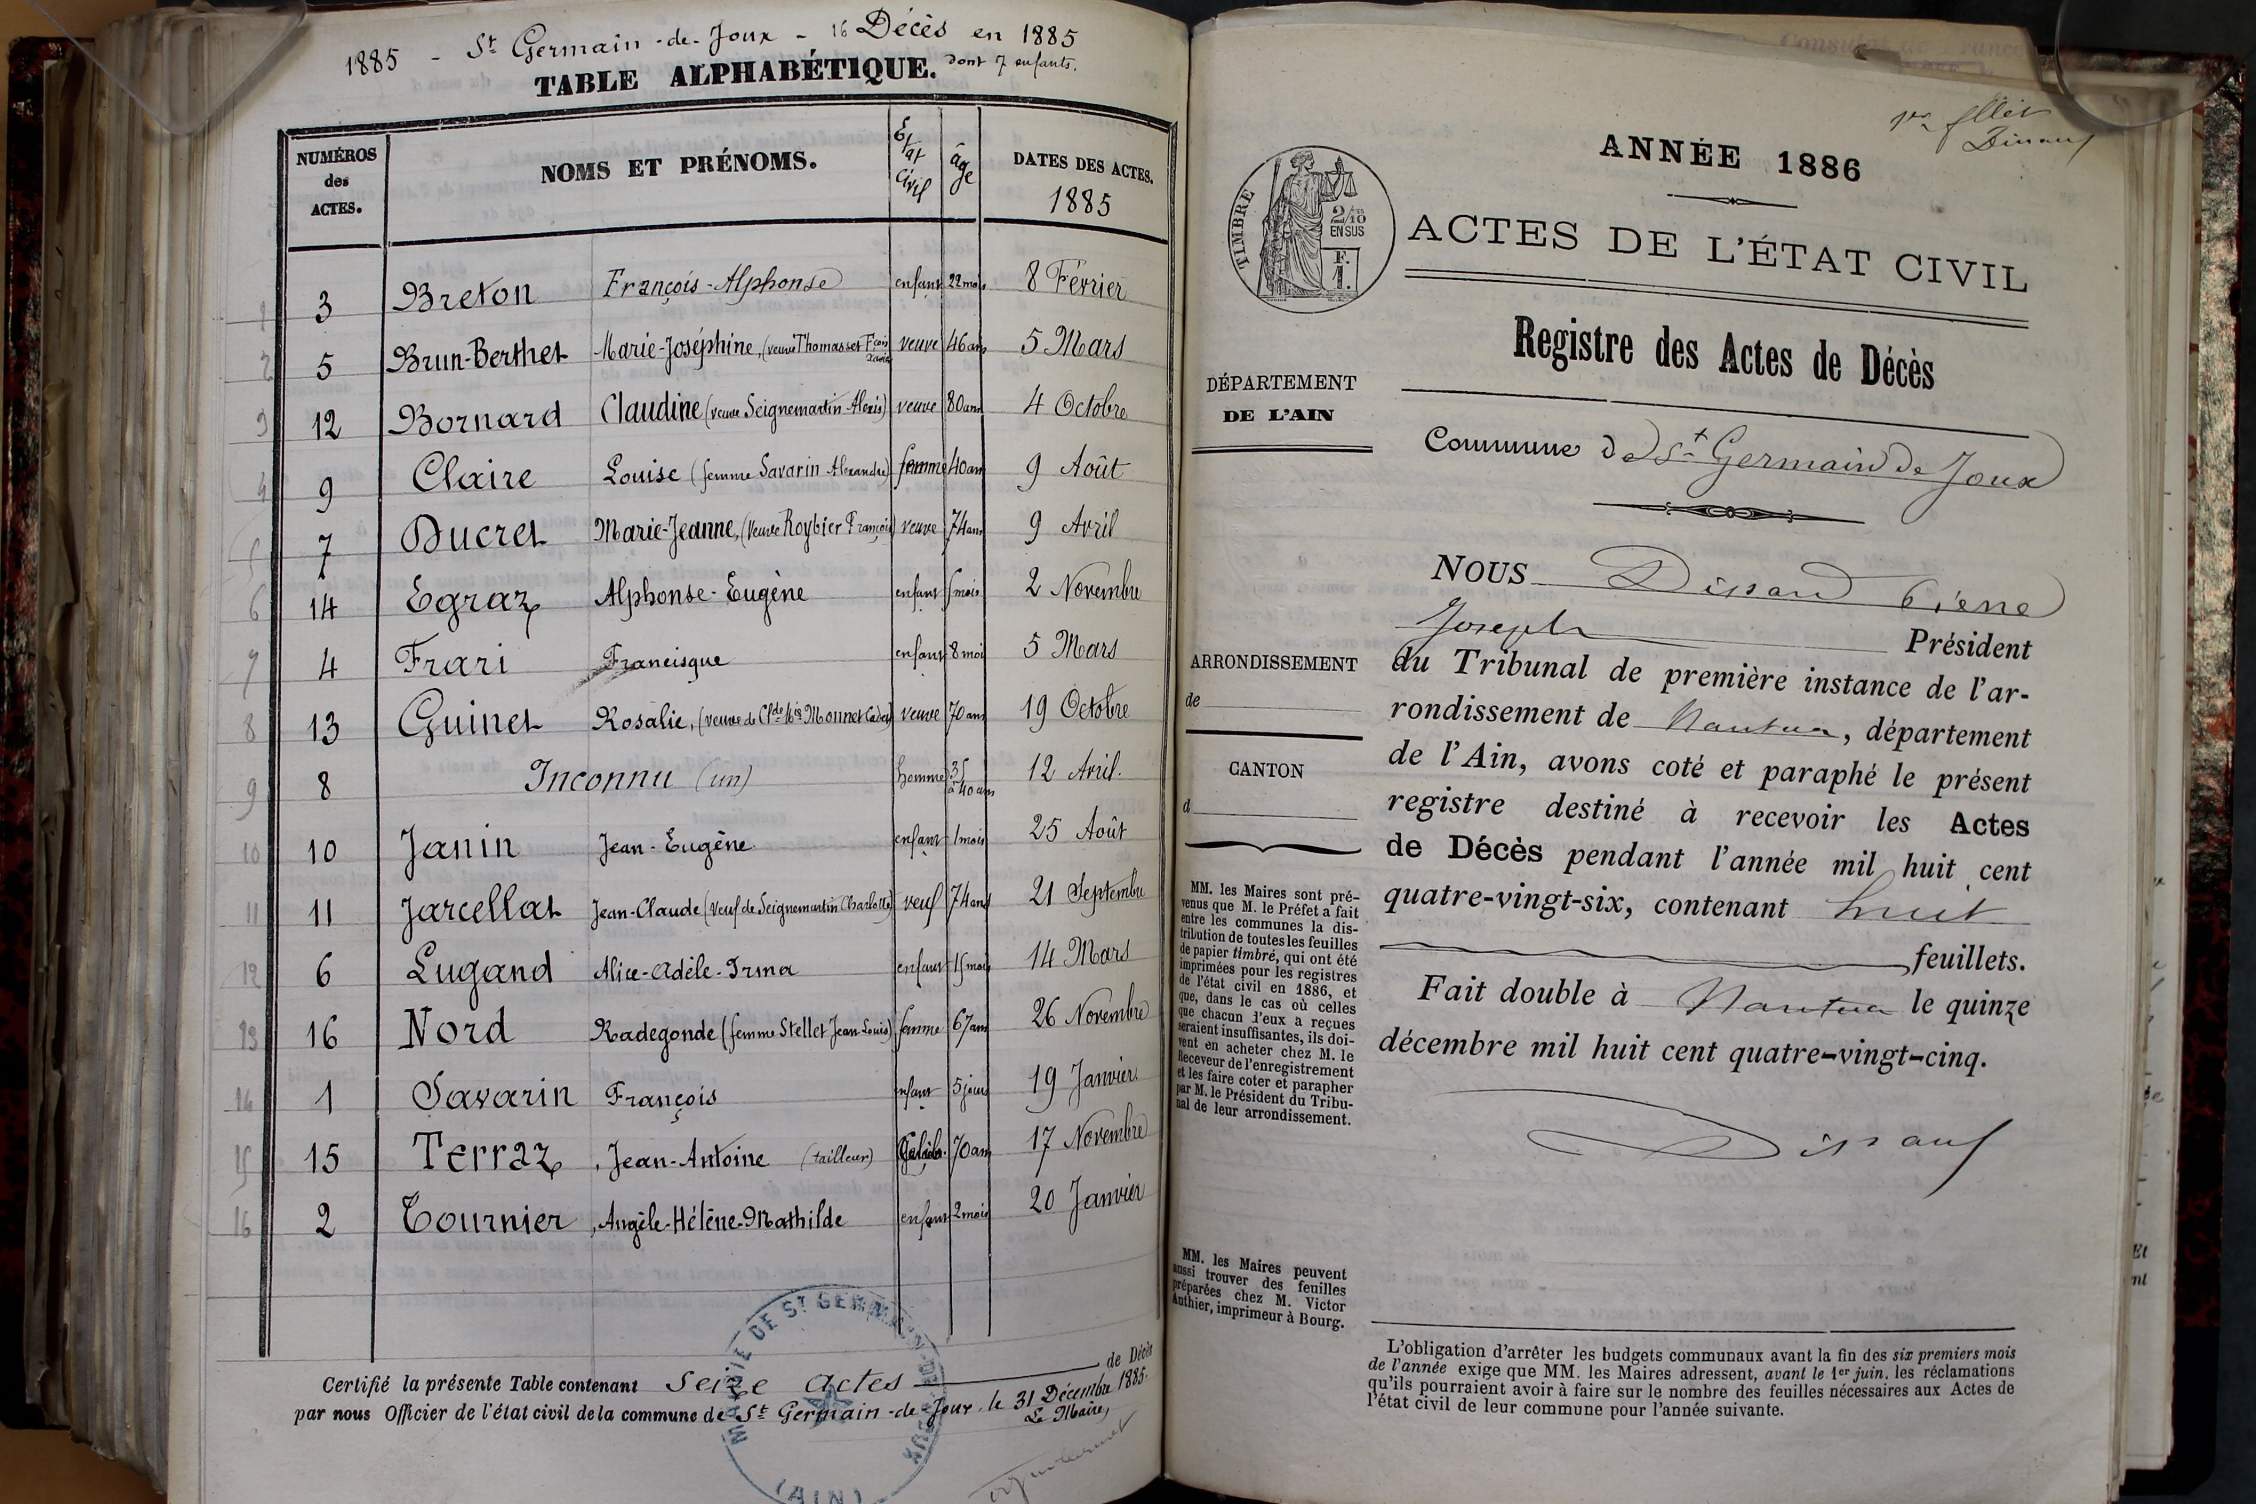 1885 - St Germain-de-Joux - 16 Décès en 1885
dont 7 enfants.
TABLE ALPHABÉTIQUE.
NUMÉROS des ACTES. NOMS ET PRÉNOMS. Etat civil âge DATES DES ACTES. 1885
1 3 Breton François-Alphonse enfant 22 mois 8 Février
2 5 Brun-Berthet Marie-Joséphine, (veuve Thomasset Fçois Xavier veuve 46 ans 5 Mars
3 12 Bornard Claudine (veuve Seignemartin Alexis) veuve 80 ans 4 Octobre
4 9 Claire Louise (femme Savarin Alexandre) femme 40 ans 9 Août
5 7 Ducret Marie-Jeanne, (veuve Roybier François) veuve 74 ans 9 Avril
6 14 Egraz Alphonse-Eugène enfant mois 2 Novembre
7 4 Frari Francisque enfant 8 mois 5 Mars
8 13 Guinet Rosalie, (veuve de Cl.de Mounet Cadet) veuve 70 ans 19 Octobre
9 8 Inconnu (un) homme 35 à 40 ans 12 Avril.
10 10 Janin Jean-Eugène enfant 1 mois 25 Août
11 11 Jarcellat Jean-Claude (Veuf de Seignemartin Charlotte) veuf 74 ans 21 Septembre
12 6 Lugand Alice-Adèle-Irma enfant 15 mois 14 Mars
13 16 Nord Radegonde (femme Stellet Jean-Louis) femme 67 ans 26 Novembre
14 1 Savarin François enfant 5 jours 19 Janvier
15 15 Terraz, Jean-Antoine (tailleur) 70 ans 17 Novembre
16 2 Tournier, Angèle-Hélène-Mathilde enfant 2 mois 20 Janvier
Certifié la présente Table contenant Seize actes de Décès
par nous Officier de l'état civil de la commune de St Germain-de-Joux, le 31 Décembre 1885.
Le Maire,
MAIRIE DE ST GERMAIN-DE-JOUX
(AIN)
ANNÉE 1886
TIMBRE
2/10 EN SUS
F. 1.
ACTES DE L'ÉTAT CIVIL
Registre des Actes de Décès
DÉPARTEMENT
DE L'AIN
Commune de St Germain de Joux
NOUS Dissard Pierre
Joseph Président
ARRONDISSEMENT
de
CANTON
d
du Tribunal de première instance de l'ar-
rondissement de Nantua, département
de l'Ain, avons coté et paraphé le présent
registre destiné à recevoir les Actes
de Décès pendant l'année mil huit cent
quatre-vingt-six, contenant huit
feuillets.
Fait double à Nantua le quinze
décembre mil huit cent quatre-vingt-cinq.
Dissard
MM. les Maires sont pré-
venus que M. le Préfet a fait
entre les communes la dis-
tribution de toutes les feuilles
de papier timbré, qui ont été
imprimées pour les registres
de l'état civil en 1886, et
que, dans le cas où celles
que chacun d'eux a reçues
seraient insuffisantes, ils doi-
vent en acheter chez M. le
Receveur de l'enregistrement
et les faire coter et parapher
par M. le Président du Tribu-
nal de leur arrondissement.
MM. les Maires peuvent
aussi trouver des feuilles
préparées chez M. Victor
Authier, imprimeur à Bourg.
L'obligation d'arrêter les budgets communaux avant la fin des six premiers mois
de l'année exige que MM. les Maires adressent, avant le 1er juin, les réclamations
qu'ils pourraient avoir à faire sur le nombre des feuilles nécessaires aux Actes de
l'état civil de leur commune pour l'année suivante.